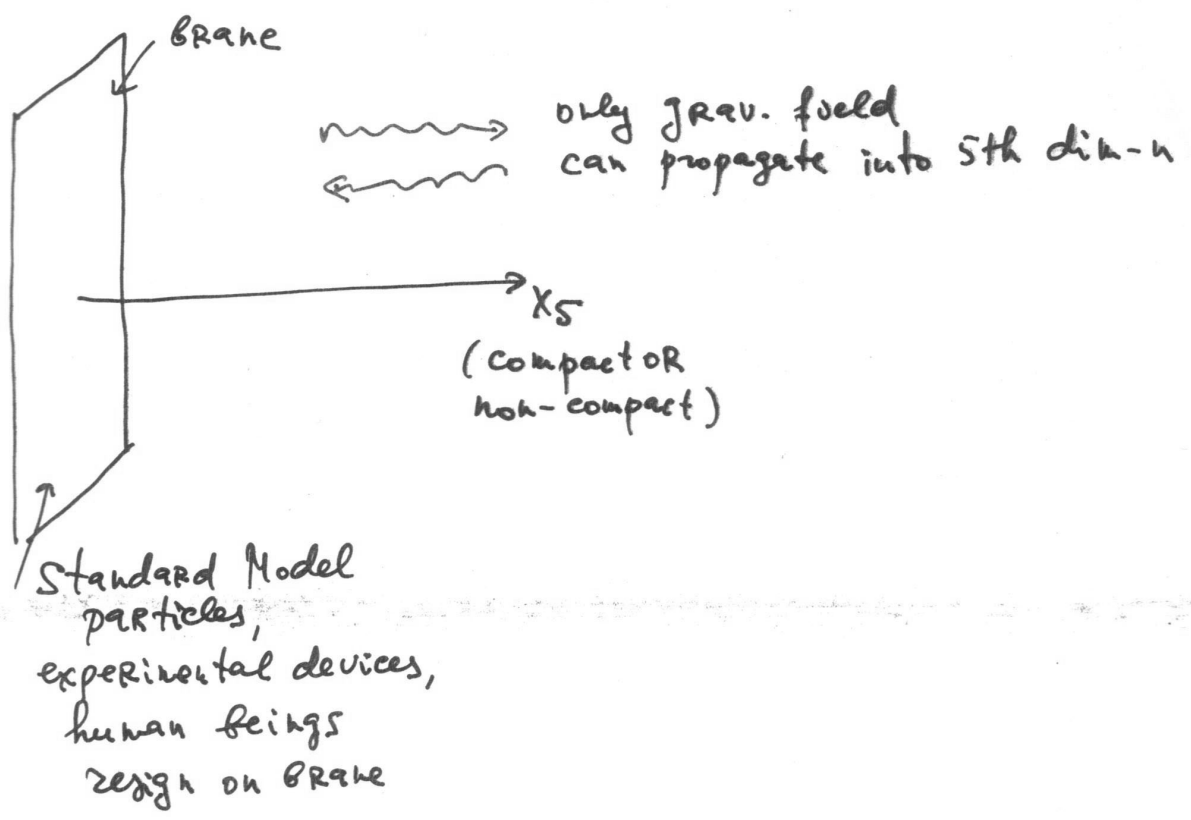 brane
only grav. field
can propagate into 5th dim-n
x5
(compact or
non-compact)
Standard Model
particles,
experimental devices,
human beings
resign on brane